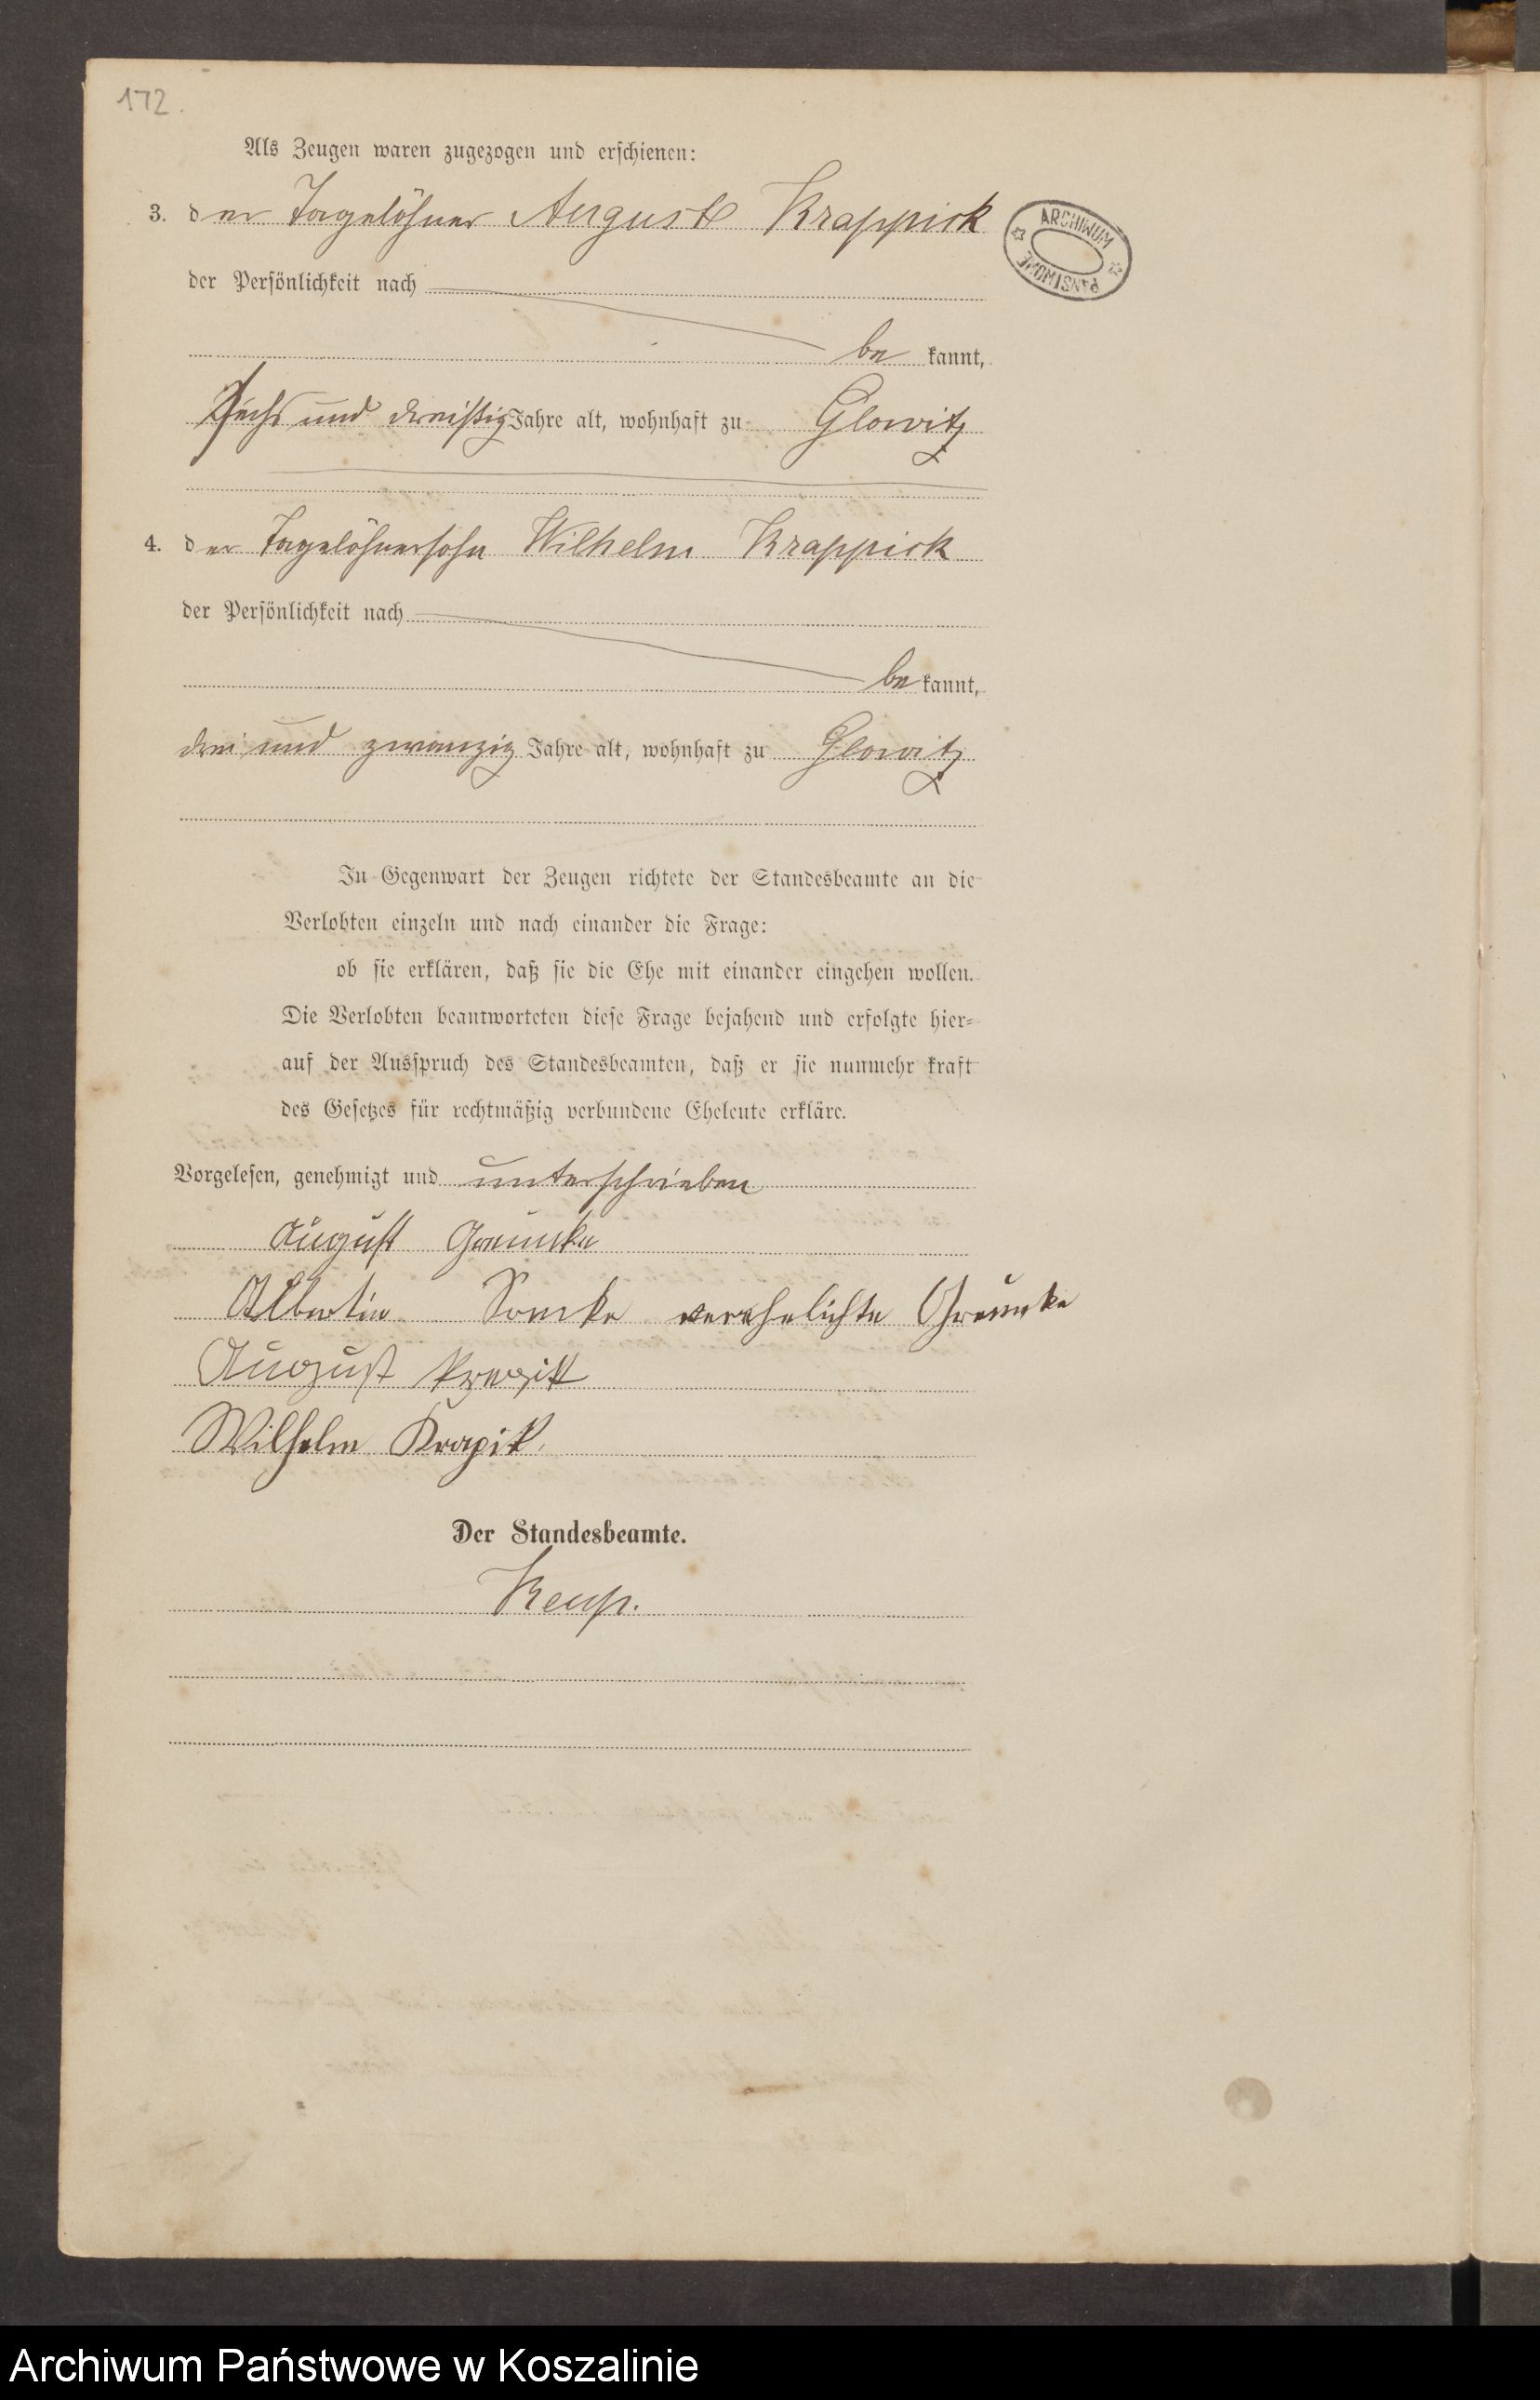 172.
Als Zeugen waren zugezogen und erschienen:
3. der Tagelöhner August Krappick
der Persönlichkeit nach
be kannt,
sechs und dreißig Jahre alt, wohnhaft zu Glowitz
4. der Tagelöhnersohn Wilhelm Krappick
der Persönlichkeit nach
be kannt,
drei und zwanzig Jahre alt, wohnhaft zu Glowitz
In Gegenwart der Zeugen richtete der Standesbeamte an die
Verlobten einzeln und nach einander die Frage:
ob sie erklären, daß sie die Ehe mit einander eingehen wollen.
Die Verlobten beantworteten diese Frage bejahend und erfolgte hier-
auf der Ausspruch des Standesbeamten, daß er sie nunmehr kraft
des Gesetzes für rechtmäßig verbundene Eheleute erkläre.
Vorgelesen, genehmigt und unterschrieben
August
Albertin verehelichte
August
Wilhelm Krapik.
Der Standesbeamte.
ARCHIWUM
PAŃSTWOWE
Archiwum Państwowe w Koszalinie